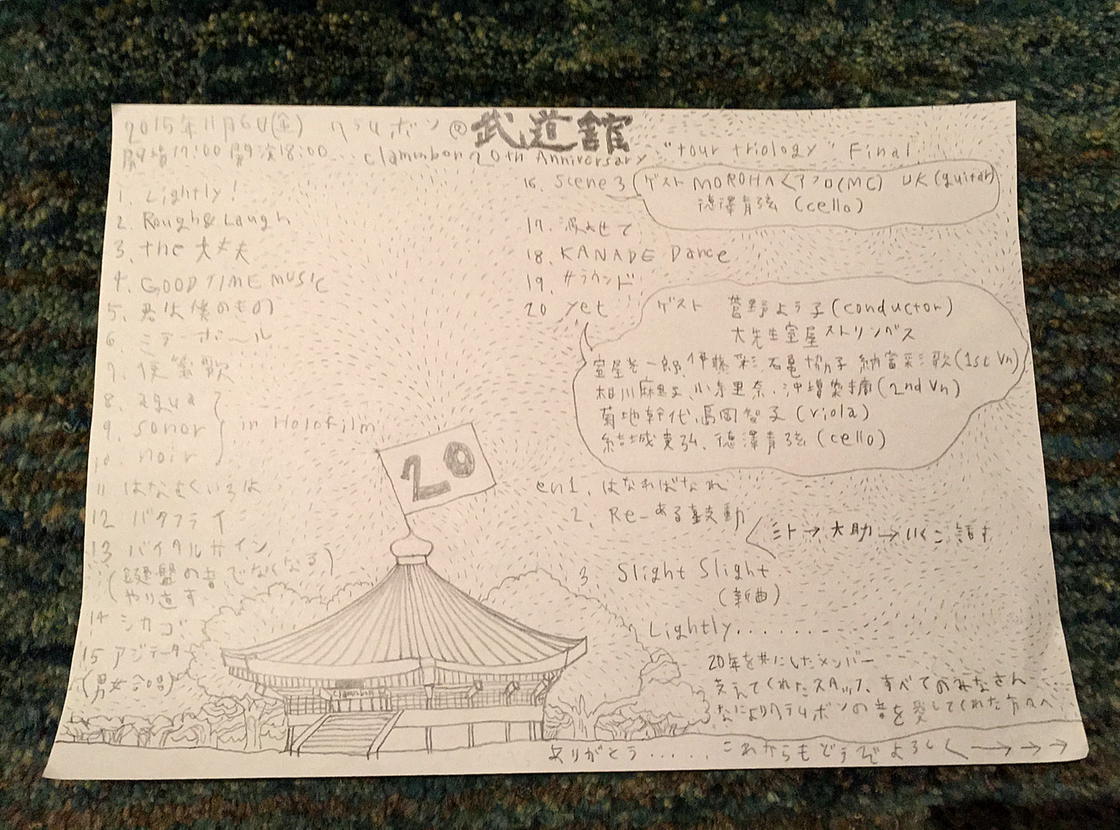 2015年11月6日(金) クラムボン@武道館
開場17:00 開演18:00... clammbon 20th Anniversary "tour triology" Final
1. Lightly!
2. Rough & Laugh
3. the 大丈夫
4. GOOD TIME MUSIC
5. 君は僕のもの
6 ミラーボール
7. 便箋歌
8. agua
9. sonor
10. noir
in Holofilm
11 はなむくいろは
12 バタフライ
13 バイタルサイン
(鍵盤の音でなくなる)
やり直す
14 シカゴ
15 アジテータ
(男女合唱)
16. Scene 3
ゲスト MOROHA<アフロ(MC) UK(guitar)
徳澤青弦 (cello)
17. 波よせて
18. KANADE Dance
19. サラウンド
20 yet
ゲスト 菅野よう子(conductor)
大先生室屋ストリングス
室屋光一郎、伊藤彩、石亀協子、納富彩歌(1st Vn)
相川麻里子、小寺里奈、沖増菜摘(2nd Vn)
菊地幹代、島岡智子(viola)
結城貴弘、徳澤青弦(cello)
en1. はなればなれ
2. Re-ある鼓動
ミト→大助→いくこ 話す
3 Slight Slight
(新曲)
Lightly.......
20年を共にしたメンバー
支えてくれたスタッフ、すべてのみなさん
なによりクラムボンの音を愛してくれた方々へ
ありがとう..... これからもどうぞよろしく→→→
20
clammbon